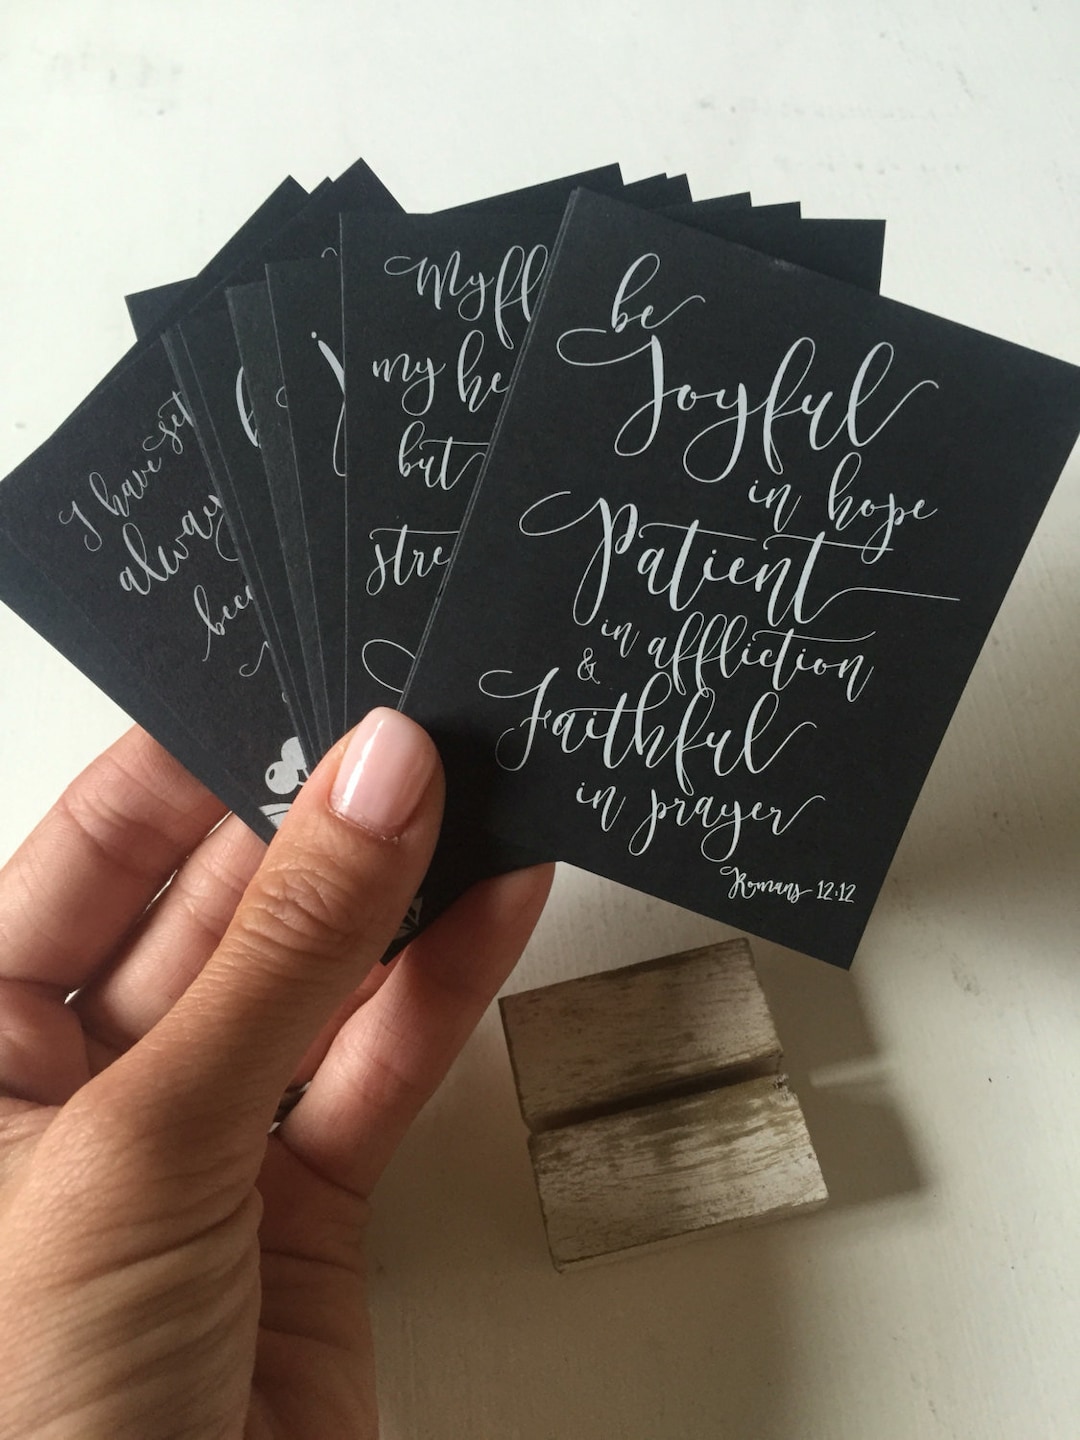 be
Joyful
in hope
Patient
in affliction
&
Faithful
in prayer
Romans 12:12
My
my
but
I have set
always